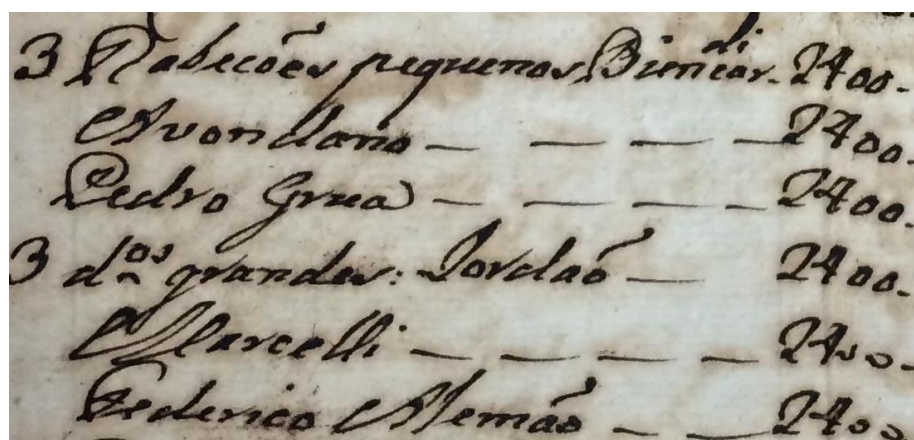 3 Rabecoẽs pequenos Biancardi. 2400.
Avondano — — — — 2400.
Pedro Grua — — — — 2400.
3 d.os grandes: Jordaõ — 2400.
Marcelli — — — — 2400.
Federico Alemaõ — — 2400